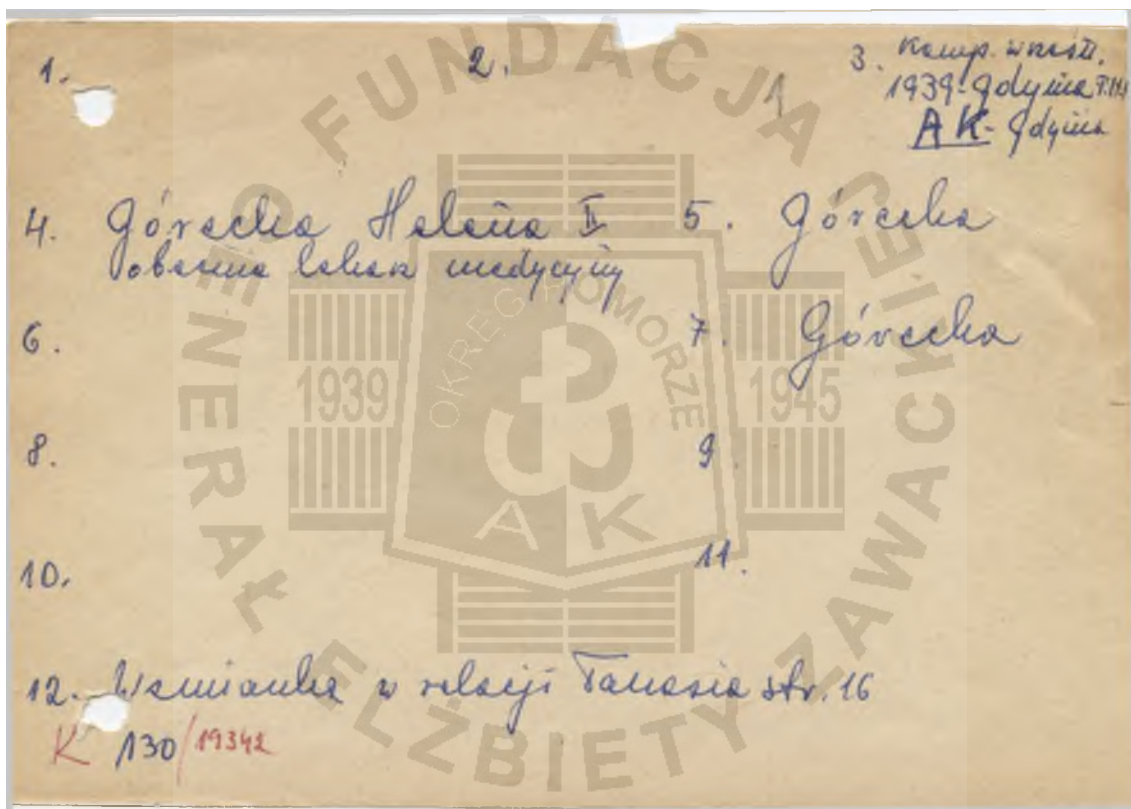 1. 2. 1 3. Kamp. wrześ.
1939-Gdynia
AK-Gdynia
4. Górecka Helena II 5. Górecka
obecnie lekarz medycyny
6. 7. Górecka
8. 9.
10. 11.
12. Wzmianka w relacji str. 16
K 130/19342
FUNDACJA
GENERAŁ ELŻBIETY ZAWACKIEJ
OKRĘG POMORZE
1939 1945
AK